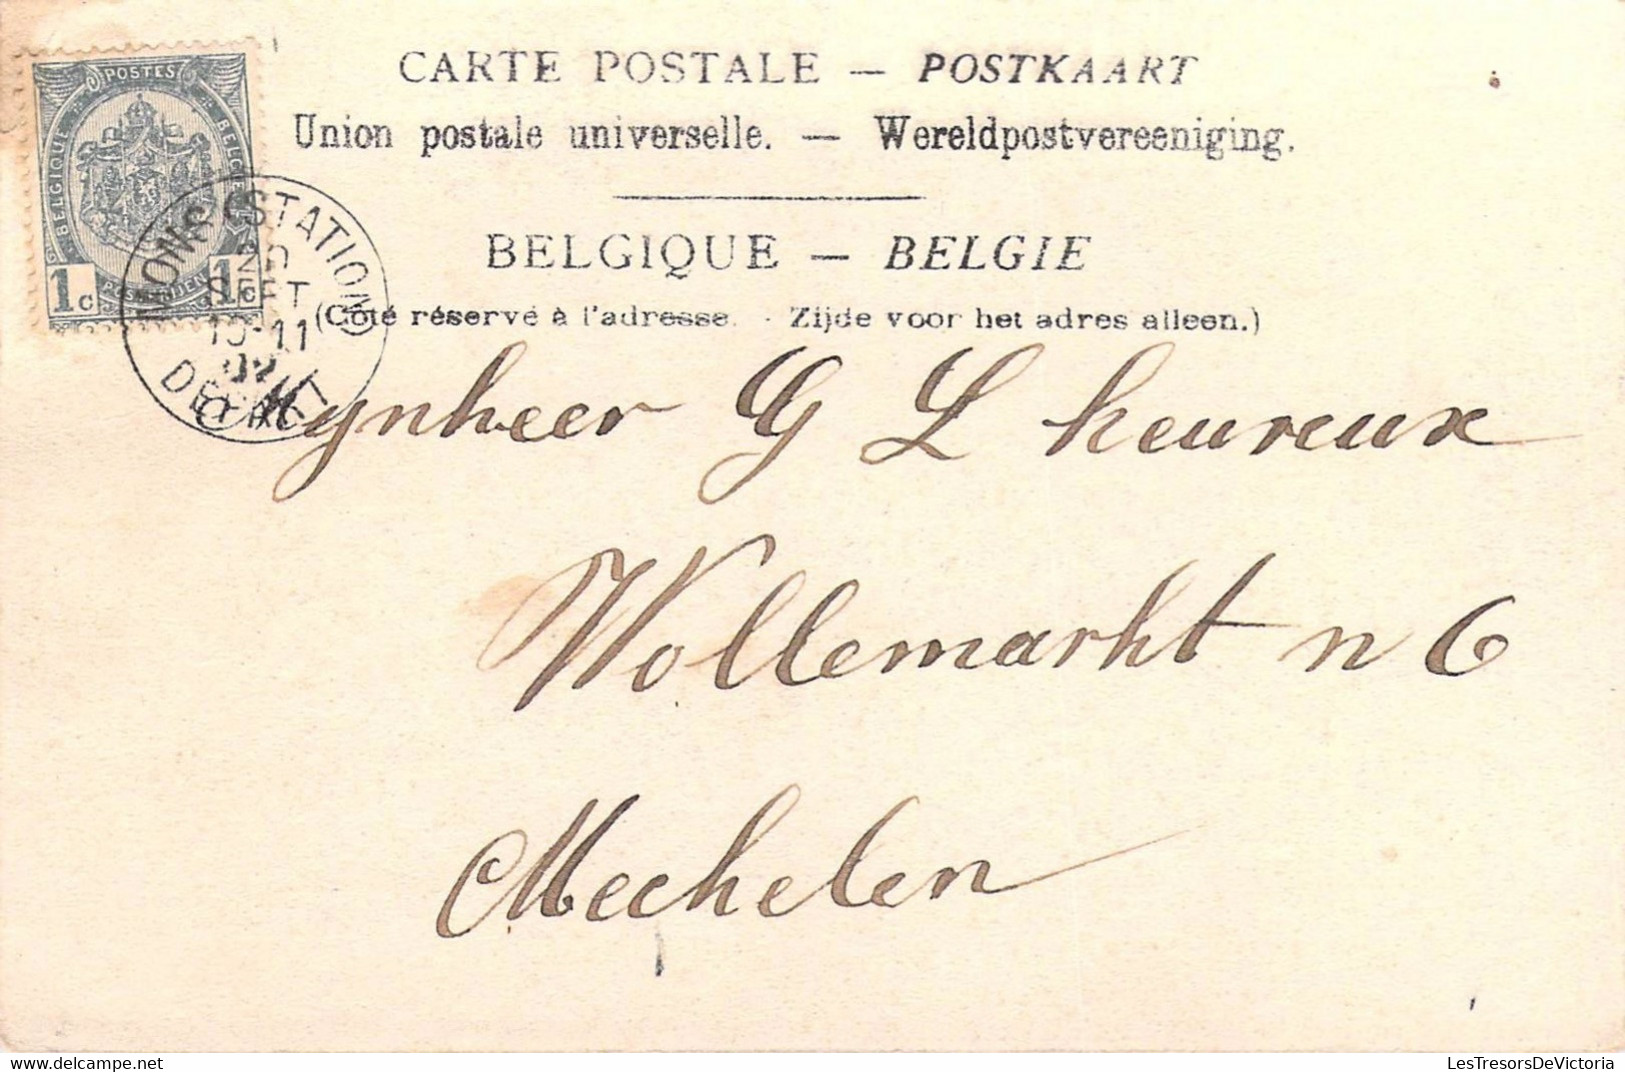 CARTE POSTALE — POSTKAART
Union postale universelle. — Wereldpostvereeniging.
BELGIQUE — BELGIE
(Côté réservé à l'adresse. - Zijde voor het adres alleen.)
POSTES
BELGIQUE
BELGIË
1c
POSTERIJEN
1c
MONS (STATION)
SEPT
DEPART
Mynheer G L heureux
Wollemarkt n 6
Mechelen
LesTresorsDeVictoria